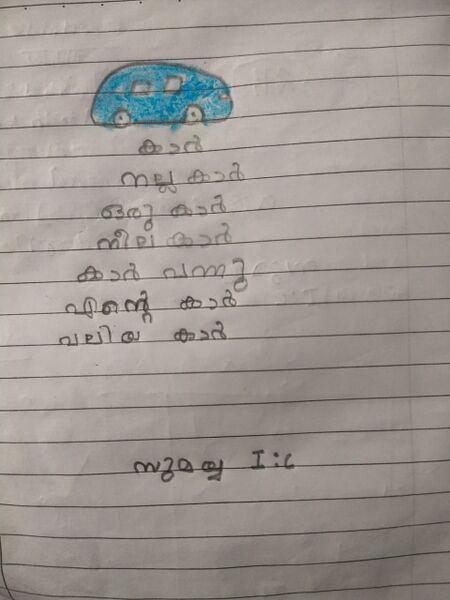 കാർ
നല്ല കാർ
ഒരു കാർ
നീല കാർ
കാർ വന്നു
എന്റെ കാർ
വലിയ കാർ
സുമയ്യ I:C